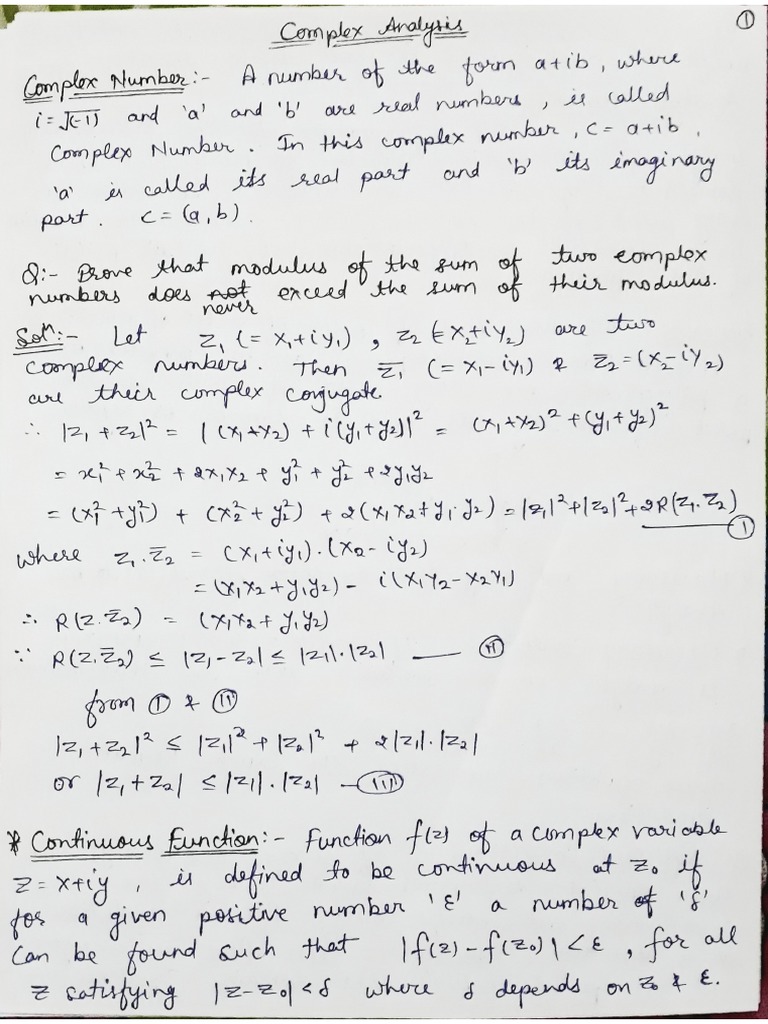 Complex Analysis
①
Complex Number:- A number of the form a+ib, where
i=√(-1) and 'a' and 'b' are real numbers, is called
Complex Number. In this complex number, c= a+ib,
'a' is called its real part and 'b' its imaginary
part. c=(a,b).
Q:- Prove that modulus of the sum of two complex
numbers does never exceed the sum of their modulus.
Solⁿ:- Let z₁ (= x₁+iy₁), z₂ (= x₂+iy₂) are two
complex numbers. Then z̄₁ (= x₁-iy₁) & z̄₂=(x₂-iy₂)
are their complex conjugate.
∴ |z₁+z₂|² = |(x₁+x₂) + i(y₁+y₂)|² = (x₁+x₂)²+(y₁+y₂)²
= x₁²+x₂² + 2x₁x₂ + y₁² + y₂² + 2y₁y₂
= (x₁²+y₁²) + (x₂²+y₂²) + 2(x₁x₂+y₁.y₂) = |z₁|²+|z₂|²+2R(z₁.z̄₂) — ①
where z₁.z̄₂ = (x₁+iy₁).(x₂-iy₂)
= (x₁x₂+y₁y₂) - i(x₁y₂-x₂y₁)
∴ R(z.z̄₂) = (x₁x₂+y₁y₂)
∵ R(z.z̄₂) ≤ |z₁-z₂| ≤ |z₁|.|z₂| — ⓘⓘ
from ① & ⓘⓘ
|z₁+z₂|² ≤ |z₁|²+|z₂|² + 2|z₁|.|z₂|
or |z₁+z₂| ≤ |z₁|.|z₂| — (iii)
* Continuous Function:- Function f(z) of a complex variable
z=x+iy, is defined to be continuous at z₀ if
for a given positive number 'ε' a number of 'δ'
can be found such that |f(z)-f(z₀)|<ε, for all
z satisfying |z-z₀|<δ where δ depends on z₀ & ε.